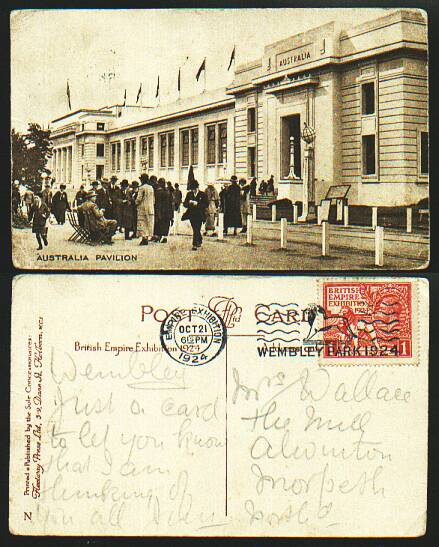 AUSTRALIA
AUSTRALIA PAVILION
POST CARD
British Empire Exhibition 1924
EMPIRE EXHIBITION
OCT 21
PM
1924
WEMBLEY PARK 1924
BRITISH
EMPIRE
EXHIBITION
1924
1
Printed & Published by the Sole Concessionaires:
Fleetway Press Ltd, 3-9, Dane St, Holborn, WC1
N
Wembley
Just a card
to let you know
that I am
thinking of
you all
Mrs Wallace
The Mill
Alwinton
Morpeth